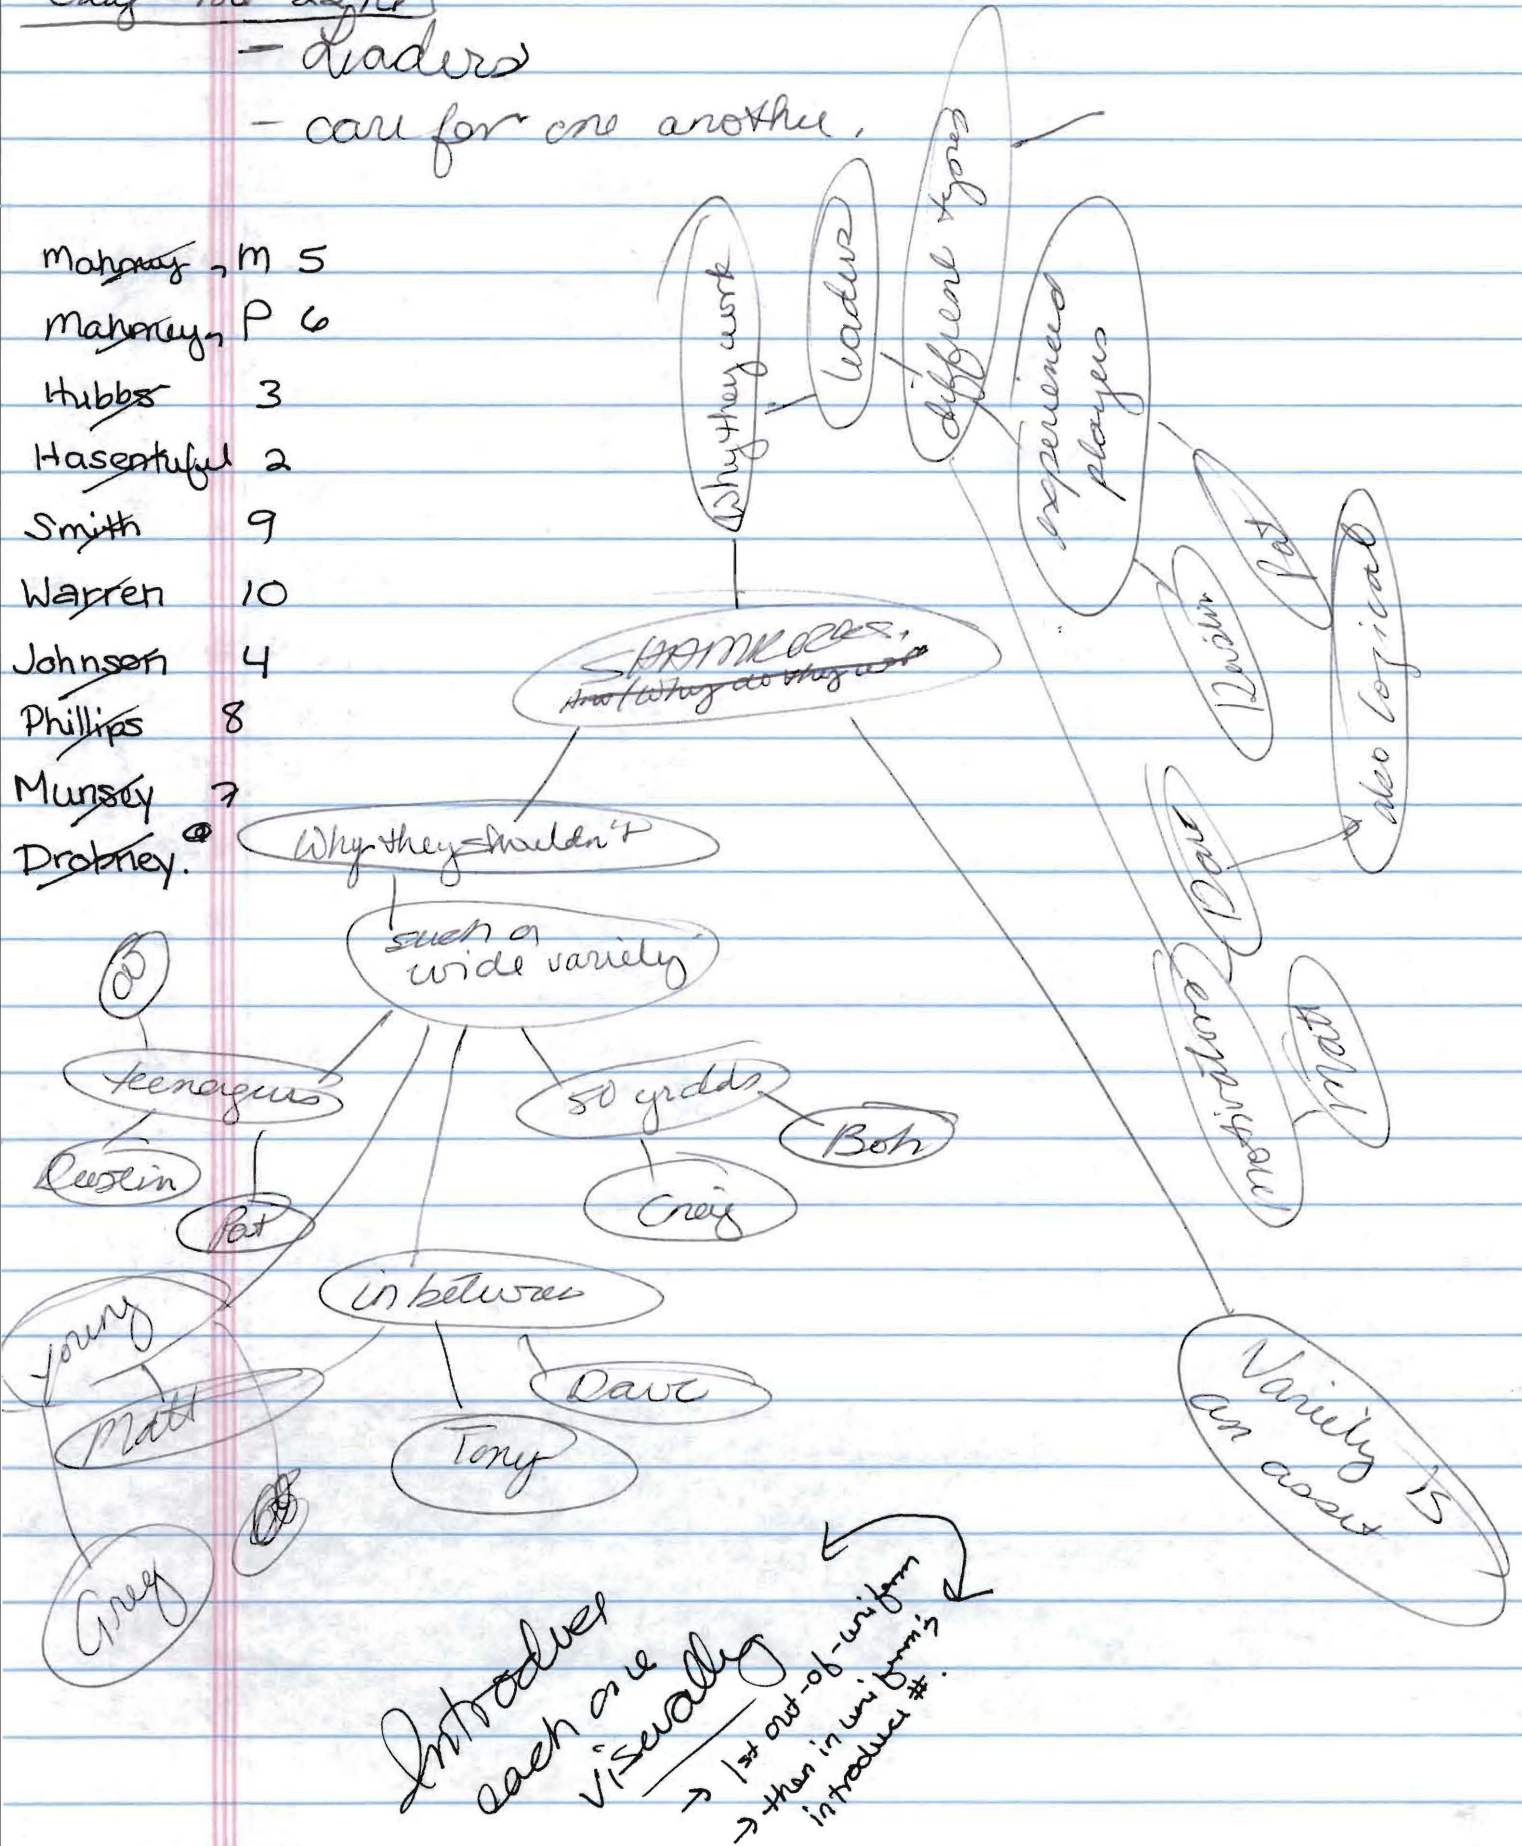 - Leaders
- care for one another.
Mahoney, M 5
Mahoney, P 6
Hubbs 3
Hasentuful 2
Smith 9
Warren 10
Johnson 4
Phillips 8
Munsey 7
Drobney.
Why they work
leaders
different types
experienced
players
Pat
Dustin
also logical
Dave
inspirational
Matt
SHAMROCKS.
Why do they work
Why they shouldn't
such a
wide variety
teenagers
Dustin
Pat
50 yr olds
Bob
Craig
in between
young
Matt
Tony
Dave
Greg
Variety is
an asset
Introduce
each one
visually
→ 1st out-of-uniform
→ then in uniform is
introduce #.